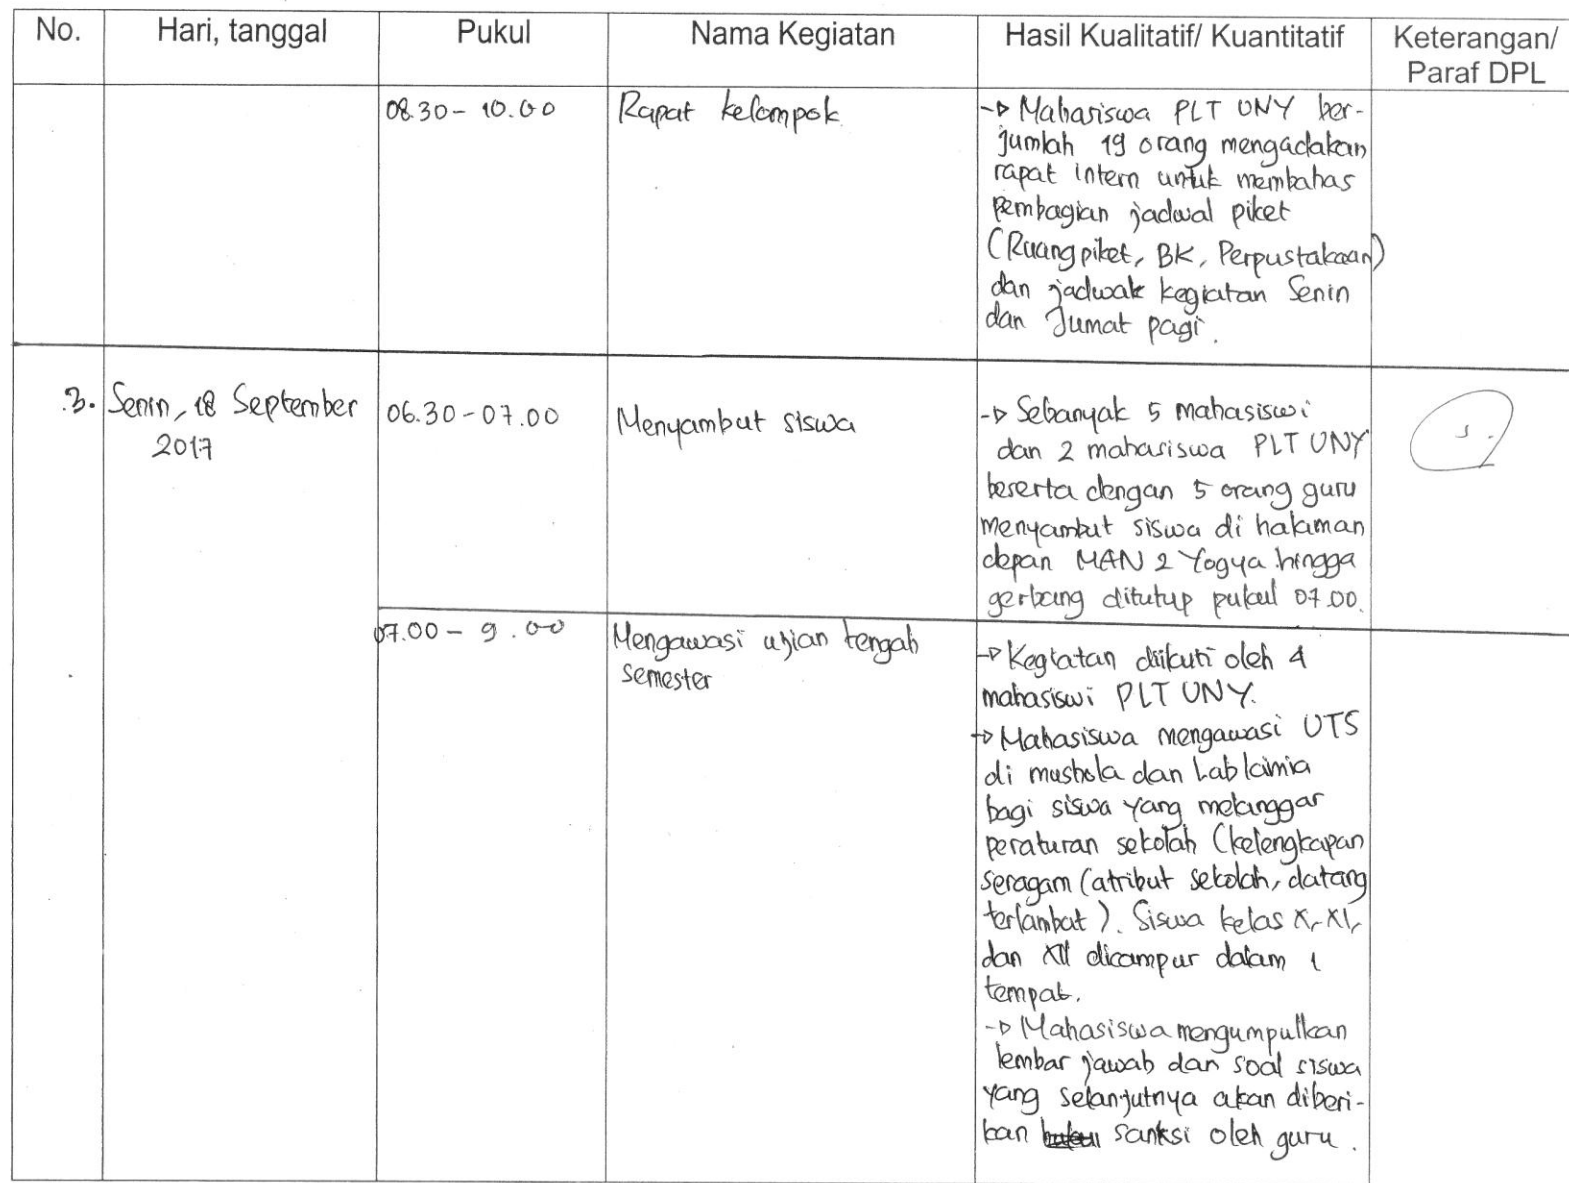 No. Hari, tanggal Pukul Nama Kegiatan Hasil Kualitatif/ Kuantitatif Keterangan/
Paraf DPL
08.30 - 10.00 Rapat kelompok -> Mahasiswa PLT UNY ber-
jumlah 19 orang mengadakan
rapat intern untuk membahas
pembagian jadwal piket
(Ruang piket, BK, Perpustakaan)
dan jadwal kegiatan Senin
dan Jumat pagi.
3. Senin, 18 September
2017
06.30 - 07.00 Menyambut siswa -> Sebanyak 5 mahasiswi
dan 2 mahasiswa PLT UNY
beserta dengan 5 orang guru
menyambut siswa di halaman
depan MAN 2 Yogya hingga
gerbang ditutup pukul 07.00.
07.00 - 9.00 Mengawasi ujian tengah
semester
-> Kegiatan diikuti oleh 4
mahasiswi PLT UNY.
-> Mahasiswa mengawasi UTS
di mushola dan Lab kimia
bagi siswa yang melanggar
peraturan sekolah (kelengkapan
seragam (atribut sekolah, datang
terlambat). Siswa kelas X, XI,
dan XII dicampur dalam 1
tempat.
-> Mahasiswa mengumpulkan
lembar jawab dan soal siswa
yang selanjutnya akan diberi-
kan sanksi oleh guru.